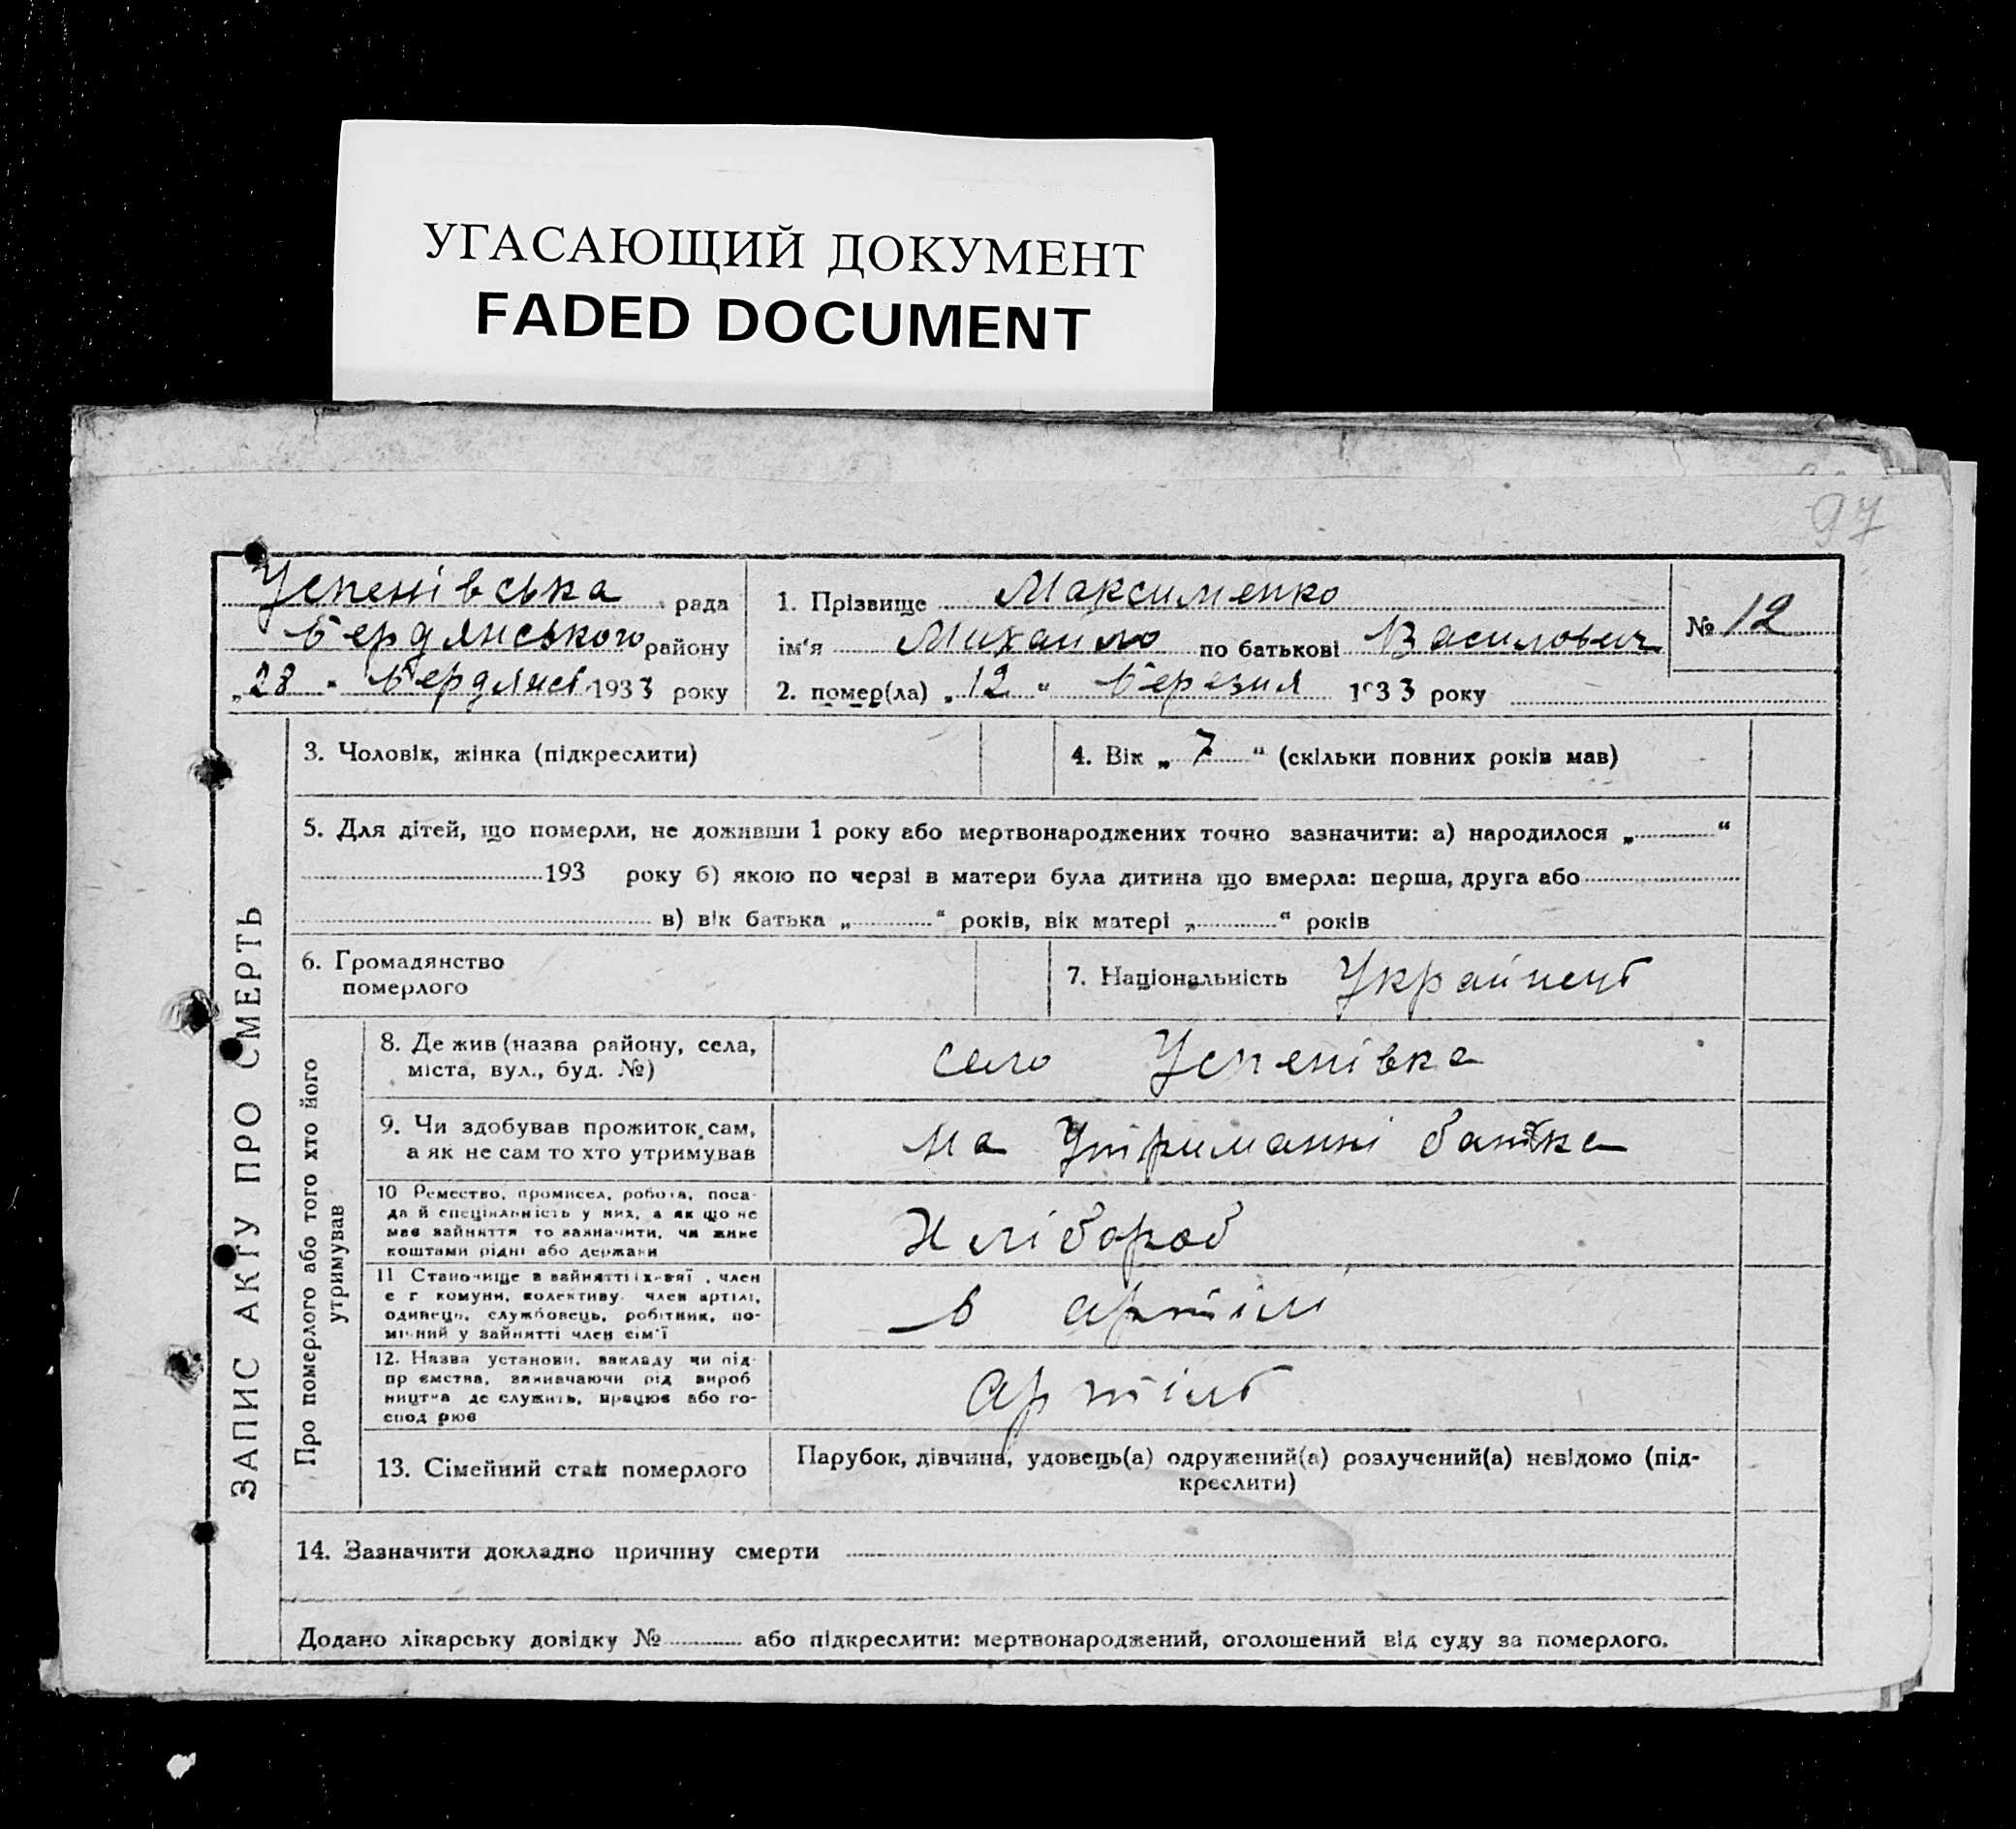 УГАСАЮЩИЙ ДОКУМЕНТ
FADED DOCUMENT
97
Успенівська рада
Бердянського району
„28 " 1933 року
1. Прізвище Максименко
ім'я Михайло по батькові Василович
№ 12
2. помер(ла) „12 " березня 1933 року
ЗАПИС АКТУ ПРО СМЕРТЬ
3. Чоловік, жінка (підкреслити)
4. Вік „ 7 " (скільки повних років мав)
5. Для дітей, що померли, не доживши 1 року або мертвонароджених точно зазначити: а) народилося „ "
193 року б) якою по черзі в матери була дитина що вмерла: перша, друга або
в) вік батька „ " років, вік матері „ " років
6. Громадянство
померлого
7. Національність Українець
Про померлого або того хто його
утримував
8. Де жив (назва району, села,
міста, вул., буд. №)
село Успенівка
9. Чи здобував прожиток сам,
а як не сам то хто утримував
на Утриманні батька
10 Ремество, промисел, робота, поса-
да й спеціяльність у них, а як що не
має зайняття то зазначити, чи живе
коштами рідні або держави
Хлібороб
11 Становище в зайнятті , член
с г комуни, колективу, член артілі,
одинець, службовець, робітник, по-
мічний у зайнятті член сім'ї
в артілі
12. Назва установи, закладу чи під-
пр ємства, зазначаючи рід вироб
ництва де служить, працює або го-
спод рює
Артіль
13. Сімейний стан померлого
Парубок, дівчина, удовець(а) одружений(а) розлучений(а) невідомо (під-
креслити)
14. Зазначити докладно причину смерти
Додано лікарську довідку № або підкреслити: мертвонароджений, оголошений від суду за померлого.